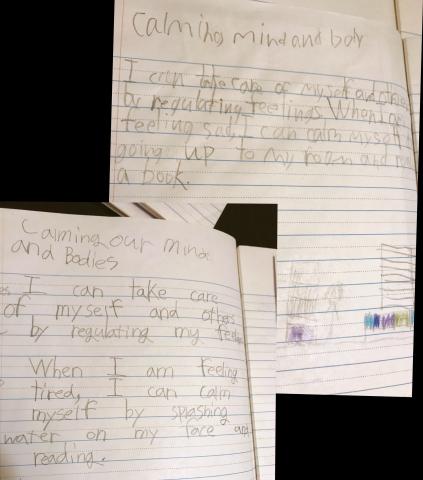 Calming mind and body
I can take care of myself and others
by regulating feelings. When I am
feeling sad, I can calm myself
going up to my room and
a book.
Calming our minds
and Bodies
I can take care
of myself and others
by regulating my
When I am feeling
tired, I can calm
myself by splashing
water on my face and
reading.